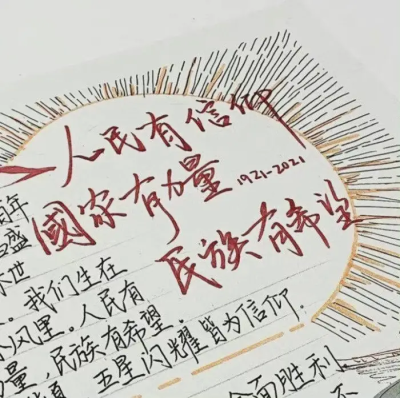 人民有信仰
國家有力量 1921-2021
民族有希望
年
盛
世
。我们生在
风里。人民有
量,民族有希望.
五星闪耀皆为信仰.
全面胜利